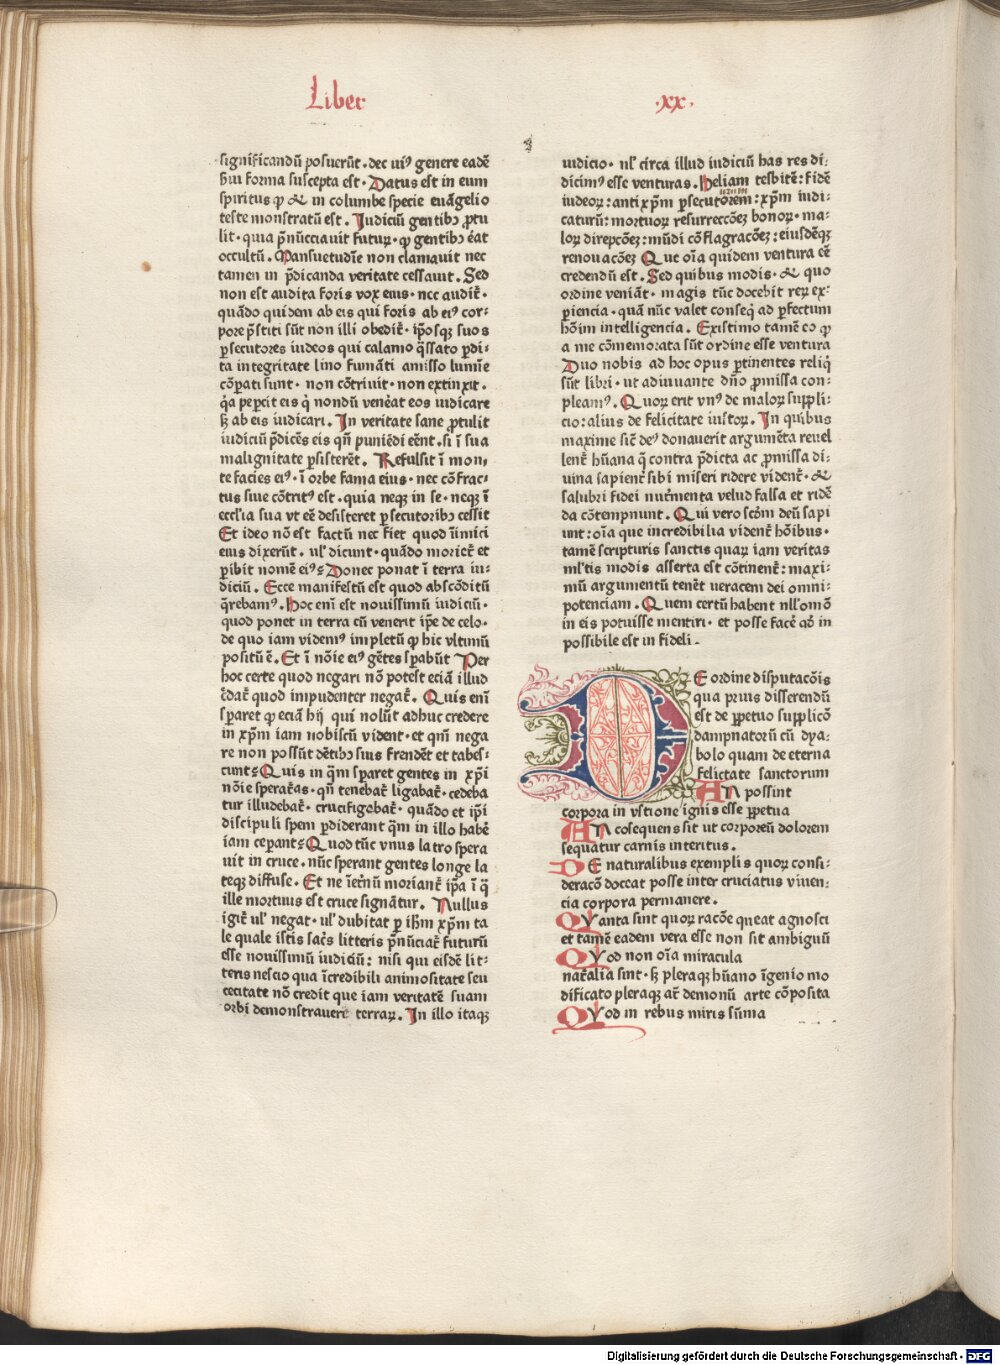 Liber
·xx·
significandū posuerūt · dec ui⁹ genere eadē
sui forma suscepta est · Datus est in eum
spiritus ꝙ & in columbe specie euāgelio
teste monstratū est . Iudiciū gentibꝫ ꝓtu
lit · quia p̄nūcciauit futuꝝ · ꝙ gentibꝫ ēat
occultū . Mansuetudīe non clamauit nec
tamen in p̄dicanda veritate cessauit . Sed
non est audita foris vox eius · nec audit᷑ ·
quādo quidem ab eis qui foris ab ei⁹ cor⸗
pore p̄stiti sūt non illi obedit᷑ · ip̄osqꝫ suos
ꝑsecutores iudeos qui calamo q̄ssato ꝑdi⸗
ta integritate lino fumāti amisso lumīe
cōꝑati sunt · non cōtriuit · non extinxit .
q̇a peꝑcit eis q̇ nondū venēat eos iudicare
sꝫ ab eis iudicari . In veritate sane ꝓtulit
iudiciū p̄dicēs eis qn̄ puniēdi eēnt · si ī sua
malignitate ꝑsisterēt . Refulsit ī mon⸗
te facies ei⁹ · ī orbe fama eius · nec cōfrac⸗
tus siue cōtrit⁹ est · quia neqꝫ in se · neqꝫ ī
eccl̄ia sua vt eē desisteret ꝑsecutoribꝫ cessit
Et ideo nō est factū nec fiet quod īimici
eius dixerūt · ul̓ dicunt · quādo moriet᷑ et
ꝑibit nomē ei⁹ Donec ponat ī terra iu⸗
diciū . Ecce manifestū est quod abscōditū
q̄rebam⁹ . Hoc eni est nouissimū iudiciū ·
quod ponet in terra cū venerit ip̄e de celo ·
de quo iam videm⁹ impletū ꝙ hic vltimū
positū ē . Et ī nōie ei⁹ gētes sꝑabūt Per
hoc certe quod negari nō potest eciā illud
c̄dat᷑ quod impudenter negat᷑ . Quis eni
sꝑaret ꝙ eciā hij qui nolūt adhuc credere
in xp̄m iam nobiscū vident · et qm̄ nega
re non possūt dētibꝫ suis frendēt et tabes⸗
cunt Quis in q̄m sꝑaret gentes in xp̄i
nōie speraturas · qn̄ tenebat᷑ ligabat᷑ · cedeba
tur illudebat᷑ · crucifigebat᷑ · quādo et ip̄i
discipuli spem ꝑdiderant q̄m in illo habē
iam ceꝑant Quod tūc vnus latro spera
uit in cruce · nūc sperant gentes longe la
teqꝫ diffuse · Et ne īet̄nū moriant᷑ ip̄a ī q̄
ille mortuus est cruce signātur . Nullus
igit᷑ ul̓ negat · ul̓ dubitat ꝑ ih̄m xp̄m ta
le quale istis sac̄s litteris p̄nūciat᷑ futurū
esse nouissimū iudiciū : nisi qui eisdē lit⸗
teris nescio qua īcredibili animositate seu
cecitate nō credit que iam veritatē suam
orbi demonstrauere terraꝝ . In illo itaqꝫ
iudicio · ul̓ circa illud iudiciū has res di⸗
dicim⁹ esse venturas . Heliam tesbitē : fidē
iudeoꝝ : antixp̄m ꝑsecutorem : xp̄m iudi⸗
caturū : mortuoꝝ resurreccōeꝫ bonoꝝ · ma⸗
loꝝ direpcōeꝫ : mūdi cōflagracōeꝫ : eiusdēqꝫ
renouacōeꝫ Que oīa quidem ventura eē
credendū est . Sed quibus modis · & quo
ordine veniāt · magis tūc docebit reꝝ ex⸗
ꝑiencia · quā nūc valet conseq̇ ad ꝑfectum
hōim intelligencia . Existimo tamē eo ꝙ
a me cōmemorata sūt ordine esse ventura
Duo nobis ad hoc opus ꝑtinentes reliq̇
sūt libri · ut adiuuante dn̄o ꝓmissa con⸗
pleam⁹ . Quoꝝ erit vn⁹ de maloꝝ suppli⸗
cio : alius de felicitate iustoꝝ . In quibus
maxime sic̄ de⁹ donauerit argumēta reuel
lent᷑ hūana q̄ contra p̄dicta ac ꝓmissa di⸗
uina sapient᷑ sibi miseri ridere vident᷑ · &
salubri fidei nut᷑menta velud falsa et ridē
da cōtempnunt . Qui vero scd̄m deū sapi
unt : oīa que incredibilia vident᷑ hōibus ·
tamē scripturis sanctis quaꝝ iam veritas
ml̓tis modis asserta est cōtinent᷑ : maxi⸗
mū argumentū tenēt veracem dei omni⸗
potenciam . Quem certū habent null̓omō
in eis potuisse mentiri · et posse facē qd̓ in
possibile est in fideli .
DE ordine disputacōis
qua prius disserendū
est de ꝑpetuo supplicō
dampnatorū cū dya⸗
bolo quam de eterna
felictate sanctorum
An possint
corpora in vstione ignis esse ꝑpetua
An cosequens sit ut corporeū dolorem
sequatur carnis interitus .
DE naturalibus exemplis quoꝝ consi⸗
deracō doceat posse inter cruciatus viuen⸗
cia corpora permanere .
QVanta sint quoꝝ racōe queat agnosci
et tamē eadem vera esse non sit ambiguū
QVod non oīa miracula
nat᷑alia sint · sꝫ pleraqꝫ hūano īgenio mo
dificato pleraqꝫ at᷑ demonū arte cōposita
QVod in rebus miris sūma
Digitalisierung gefördert durch die Deutsche Forschungsgemeinschaft - DFG